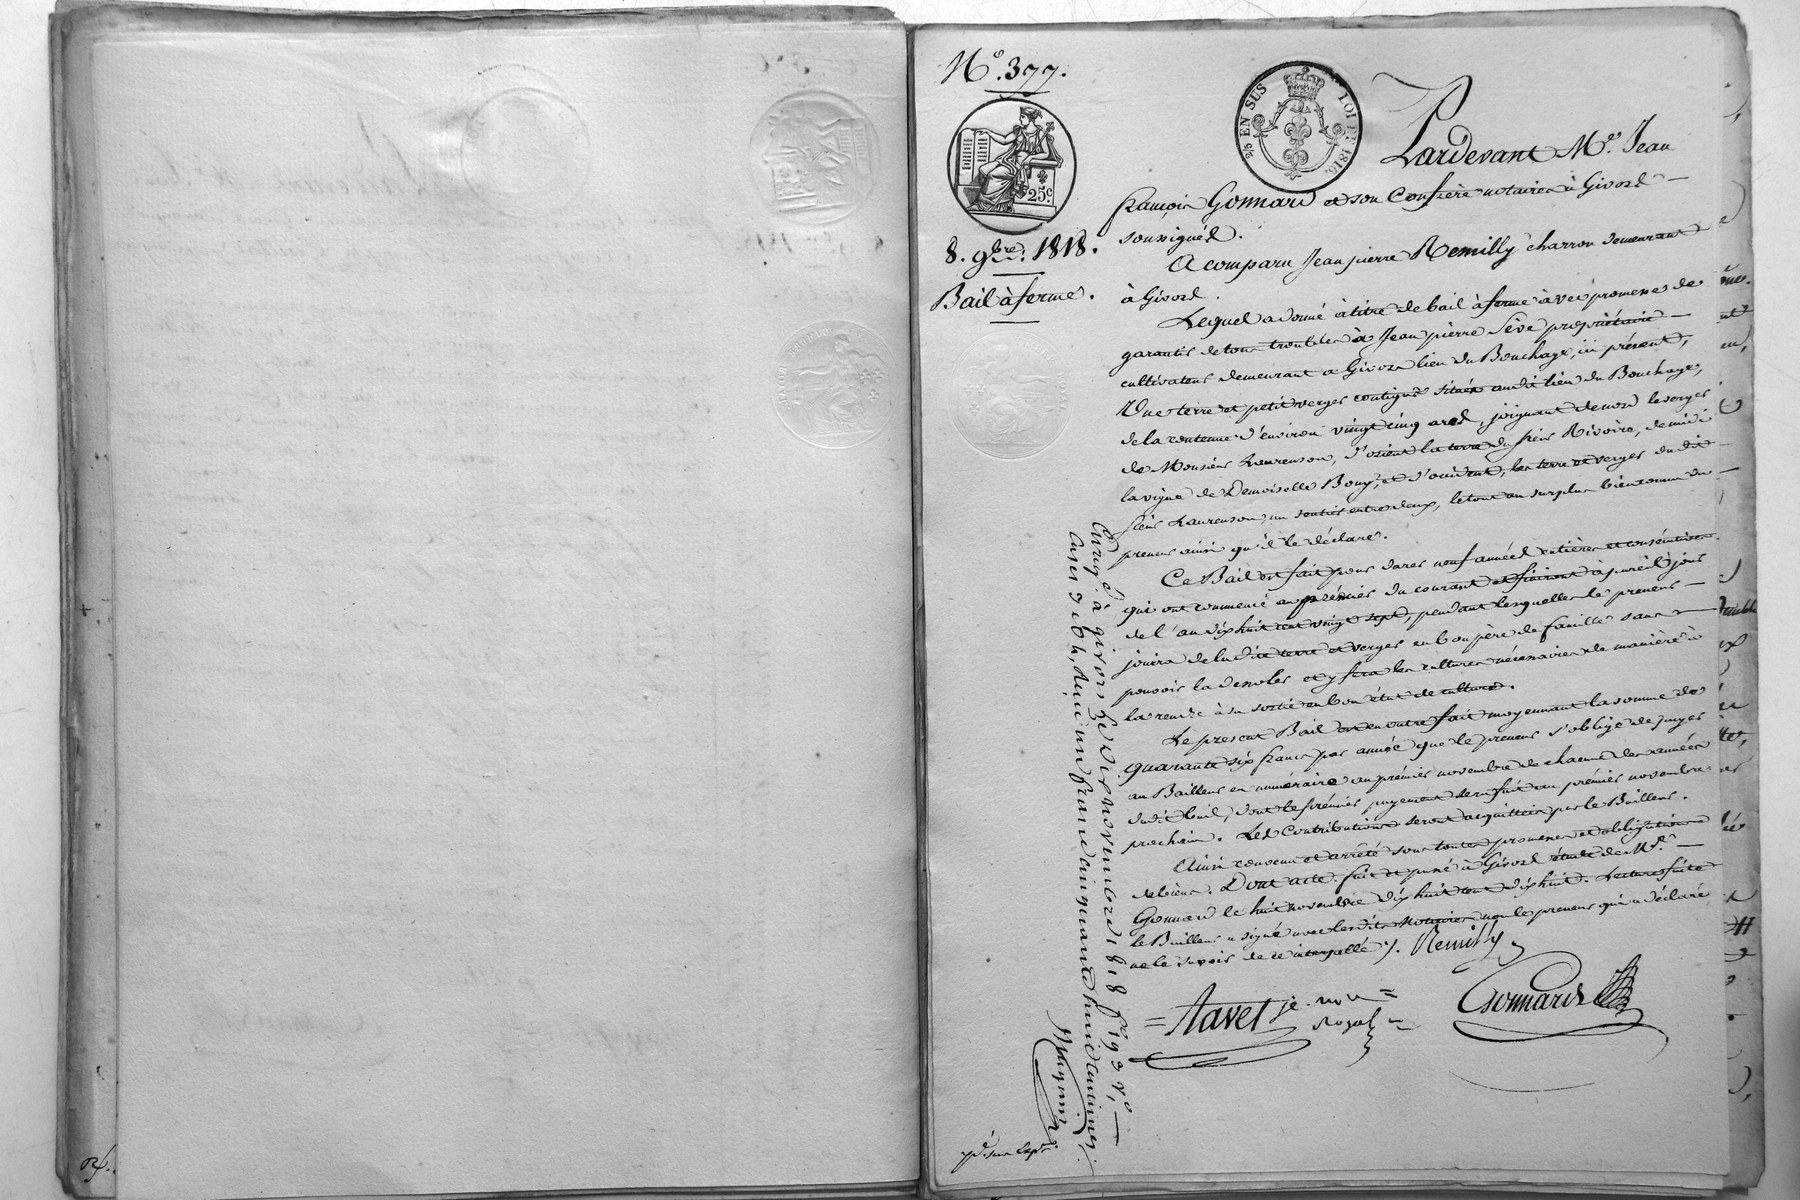 N.° 377.
25.c
2/5 EN SUS LOI DE 1816.
8. 9bre. 1818.
Bail à ferme.
Pardevant Me. Jean
françois Gonnard et son Confrère notaires à Givors
soussignés.
A comparu Jean pierre Remilly charron demeurant
à Givors.
Lequel a donné à titre de bail à ferme avec promesse de
garantir de tous troubles à Jean pierre Sève propriétaire
cultivateur demeurant à Givors lieu du Bouchage, ici présent,
Une terre et petit verger contigus situés audit lieu du Bouchage,
de la contenue d'environ vingt cinq ares, joignant de nord le verger
de Monsieur Laurenson, d'orient la terre du sieur Rivoire, de midi
la vigne de Demoiselle Bouy, et d'occident, les terre et verger du dit
sieur Laurenson, un sentier entre deux, le tout au surplus bien connu du
preneur ainsi qu'il le déclare.
Ce Bail est fait pour durer neuf années entières et consécutives
qui ont commencé au premier du courant et finiront à pareil jour
de l'an dix huit cent vingt sept, pendant lesquelles le preneur
jouira de la dite terre et verger en bon père de famille sans
pouvoir la désoler et y fera les cultures nécessaires de manière à
la rendre à sa sortie en bon état de culture.
Le present Bail est en outre fait moyennant la somme de
quarante six francs par année que le preneur s'oblige de payer
au Bailleur en numéraire au prémier novembre de chacune des années
dudit bail, dont le prémier payement sera fait au prémier novembre
prochain. Les Contributions seront acquittées par le Bailleur.
Ainsi convenu et arrêté sous toutes promesses et obligations
de biens. Dont acte. fait et passé à Givors étude de Me.
Gonnard le huit novembre dix huit cent dix huit. Lecture faite
le Bailleur a signé avec lesdits Notaires non le preneur qui a déclaré
ne le savoir de ce interpellé. J. Remilly
Favet je. Nore
Royal
Gonnard
Enregé. à givors le dix novembre 1818 fo 193 Vo,
cases 7 et 8, Reçu un franc cinquante huit centimes